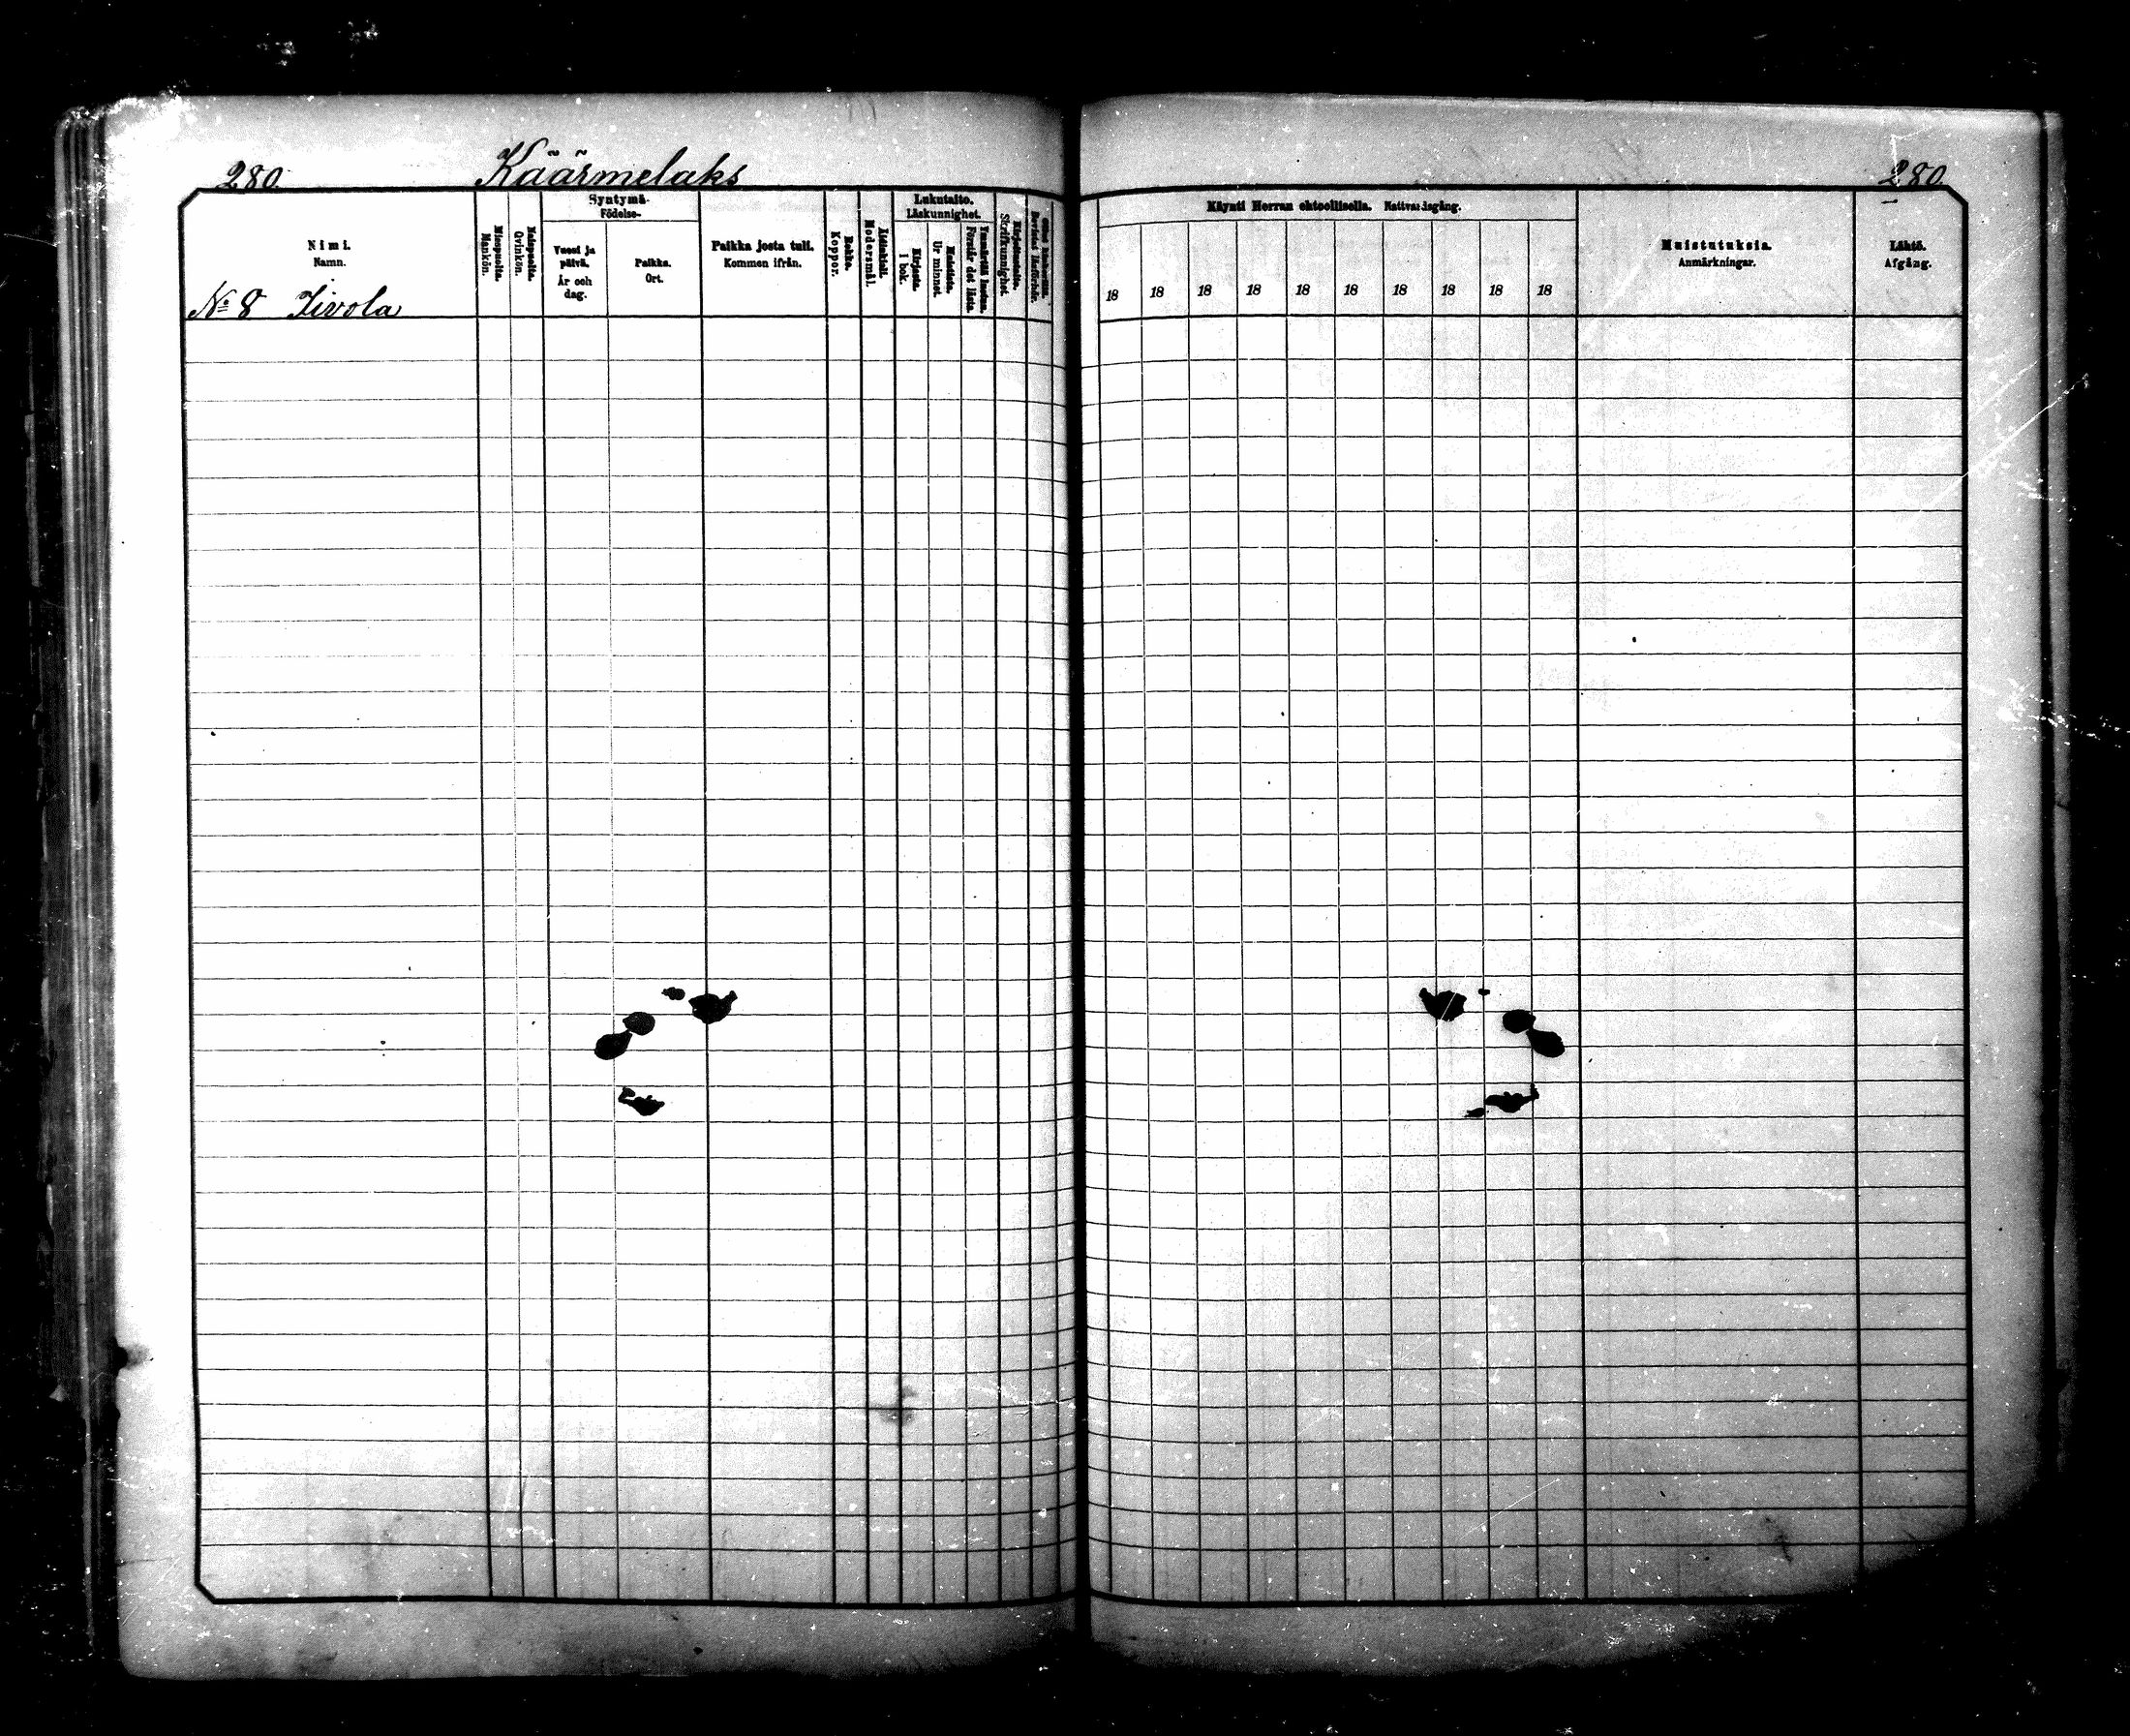 280.
Käärmelaks
280.
Nimi.
Namn.
Miespuolia.
Mankön.
Naispuolia.
Qvinkön.
Syntymä-
Födelse-
Vuosi ja
päivä.
År och
dag.
Paikka.
Ort.
Paikka josta tuli.
Kommen ifrån.
Rokko.
Koppor.
Äidinkieli.
Modersmål.
Lukutaito.
Läskunnighet.
Kirjasta.
I bok.
Muistista.
Ur minnet.
Ymmärtää luetun.
Förstår det lästa.
Kirjoitustaito.
Skrifkunnighet.
Bevistat läsförhör.
Käynti Herran ehtoollisella. Nattvardsgång.
18 18 18 18 18 18 18 18 18 18
Muistutuksia.
Anmärkningar.
Lähtö.
Afgång.
№ 8 Iivola